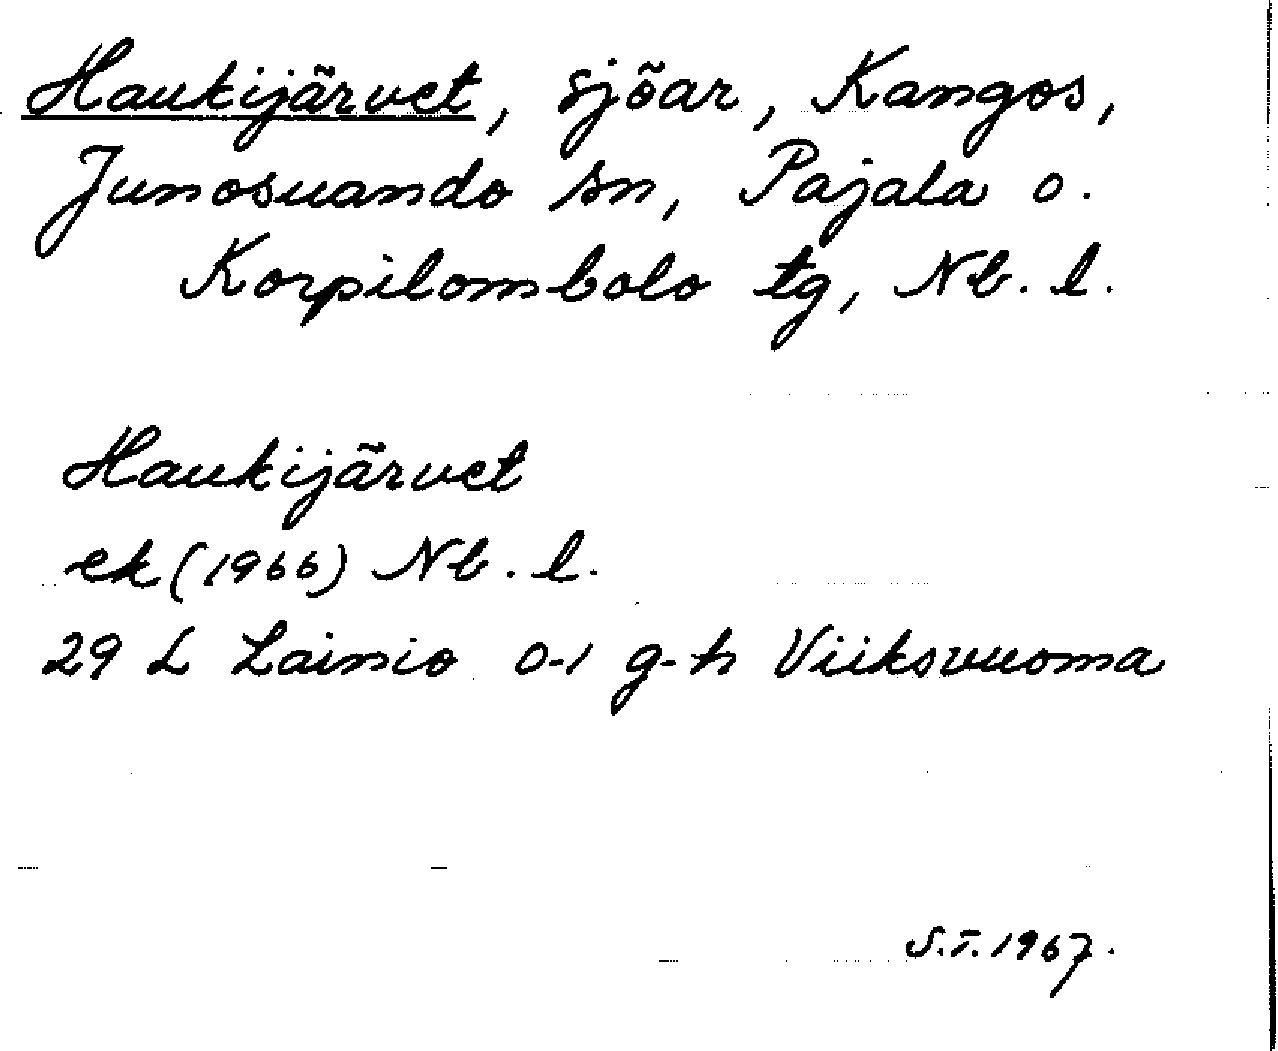 Haukijärvet, sjöar, Kangos,
Junosuando sn, Pajala o.
Korpilombolo tg, Nb. l.
Haukijärvet
ek (1966) Nb. l.
29 L Lainio 0-1 g-h Viiksvuoma
S.T. 1967.